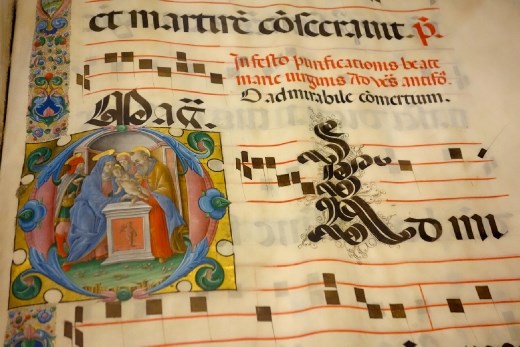 et martirē cōsecrauit. p̄.
In festo purificationis beate
marie uirginis uēs antifō.
O admirabile cōmertium.
Mag̃.
Admi